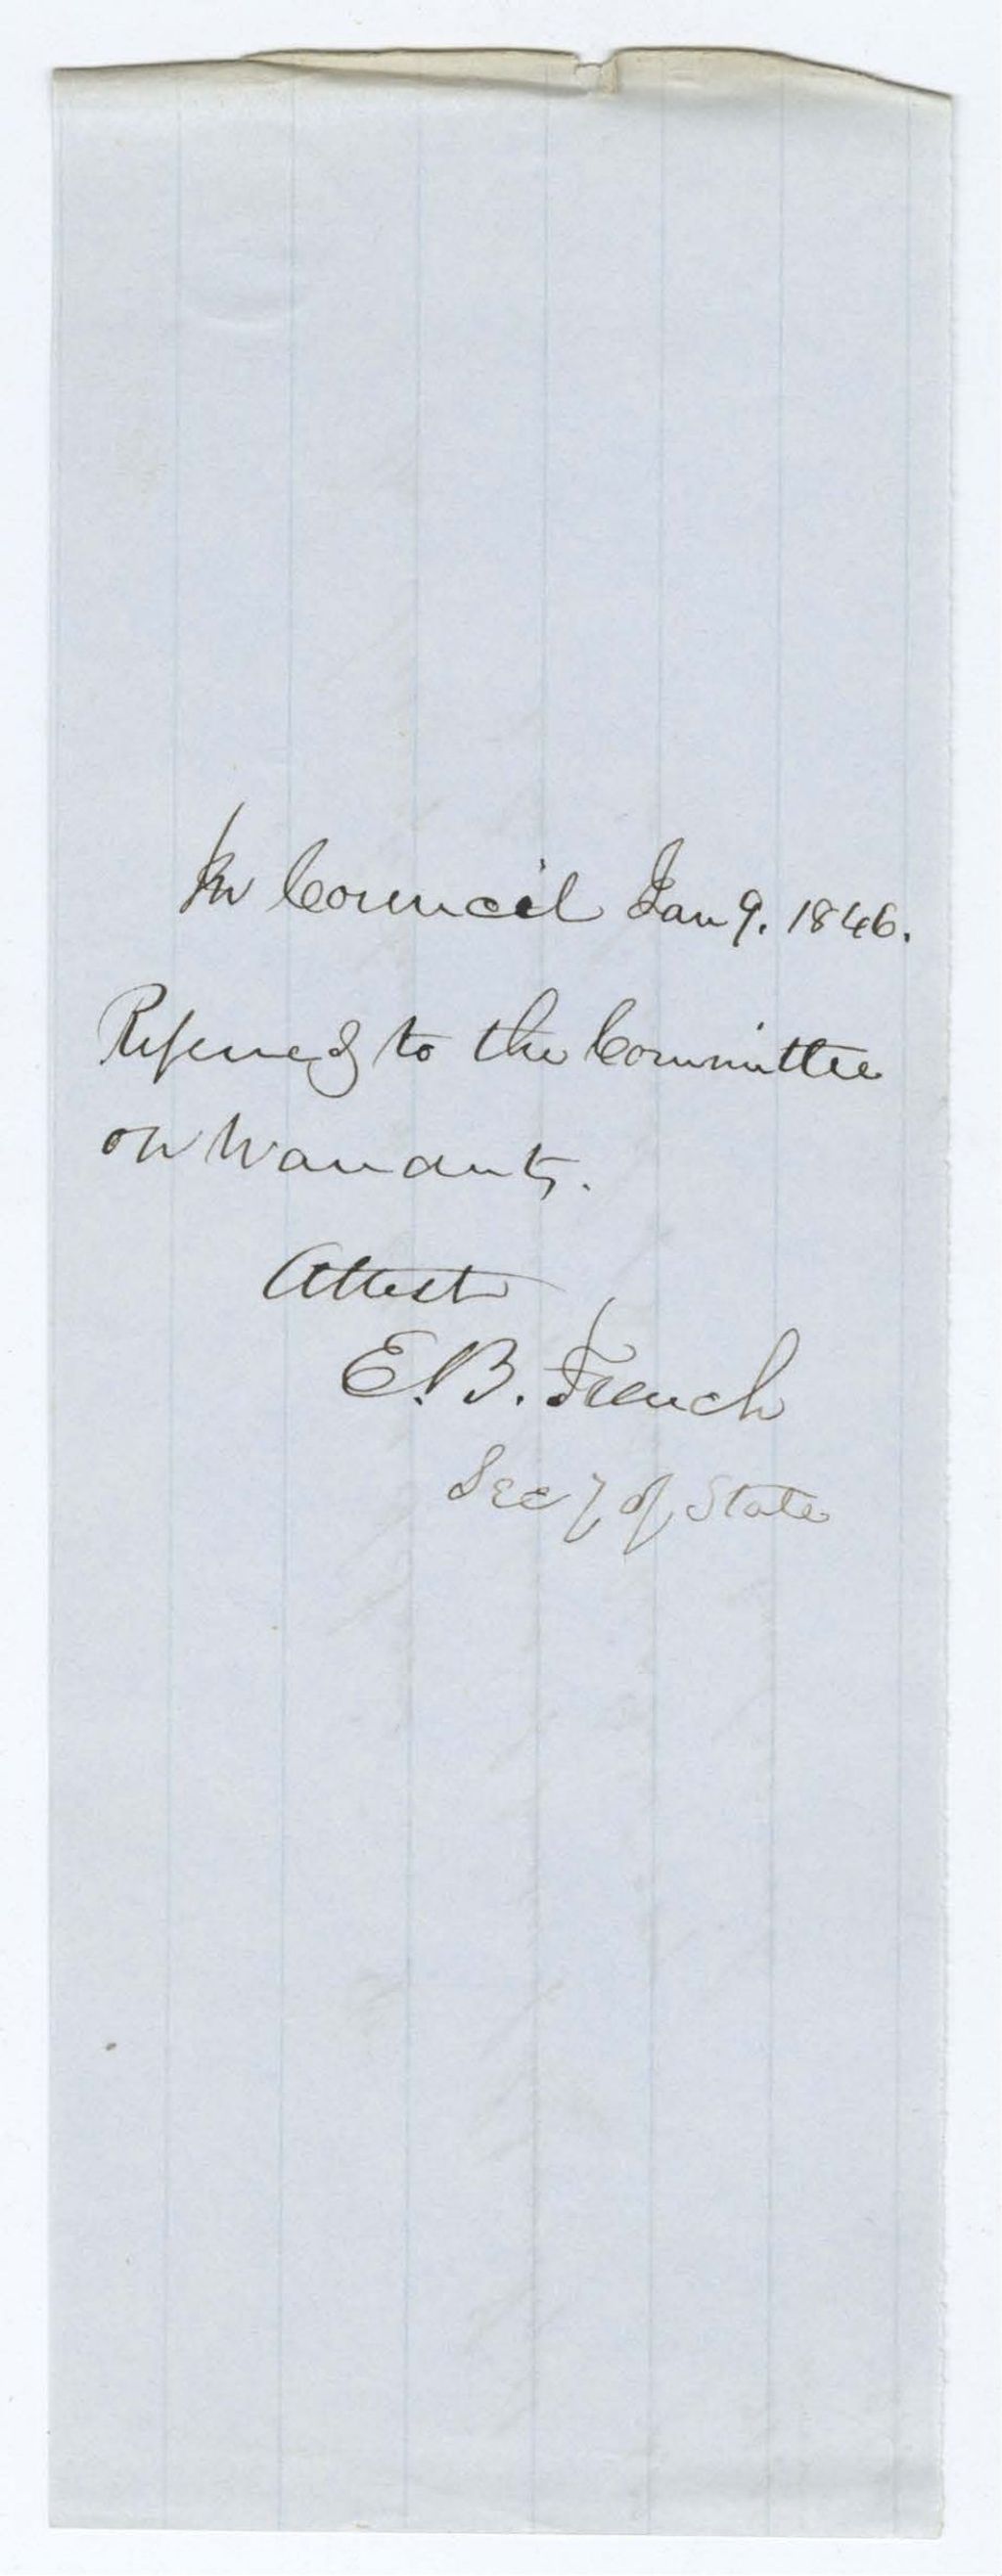 In Council Jan 9. 1846.
Referred to the Committee
on Warrants.
Attest
E. B. French
Secy of State